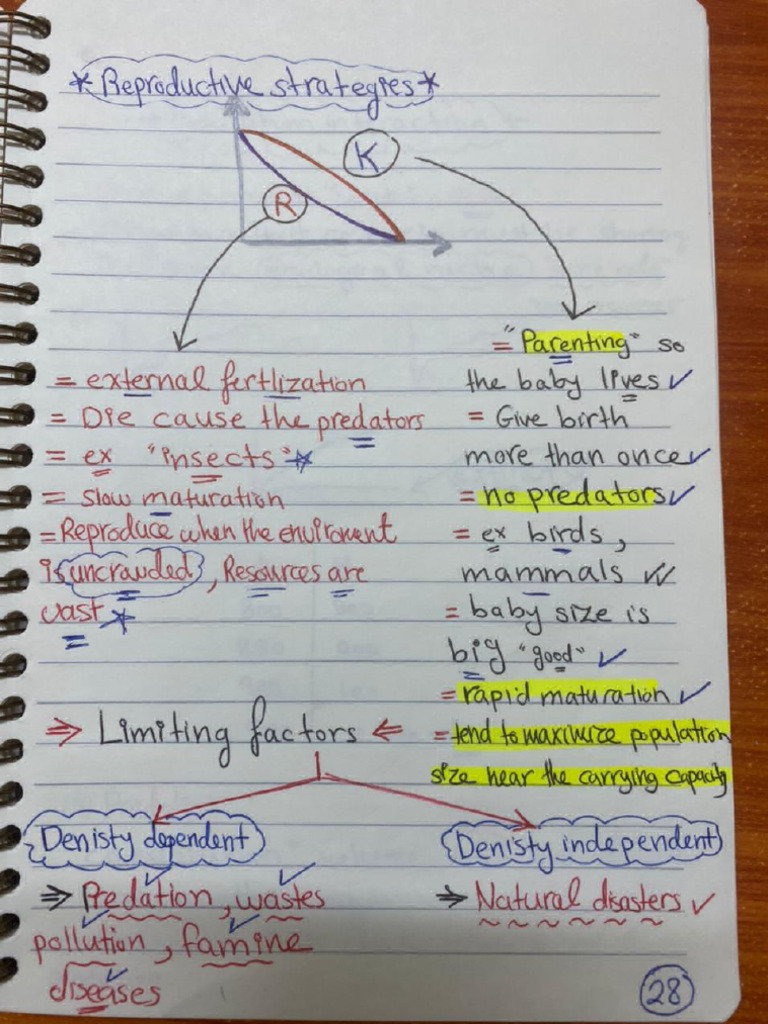 *Reproductive strategies*
K
R
= external fertlization
= Die cause the predators
= ex "insects"*
= slow maturation
=Reproduce when the enviroment
is uncrauded, Resources are
vast *
= "Parenting" so
the baby lives ✓
= Give birth
more than once ✓
= no predators ✓
= ex birds,
mammals ✓✓
= baby size is
big "good" ✓
= rapid maturation ✓
= tend to maximize population
size near the carrying capacity
⇒ Limiting factors ⇐
Denisty dependent
⇒ Predation, wastes
pollution, famine
diseases
Denisty independent
⇒ Natural disasters ✓
28